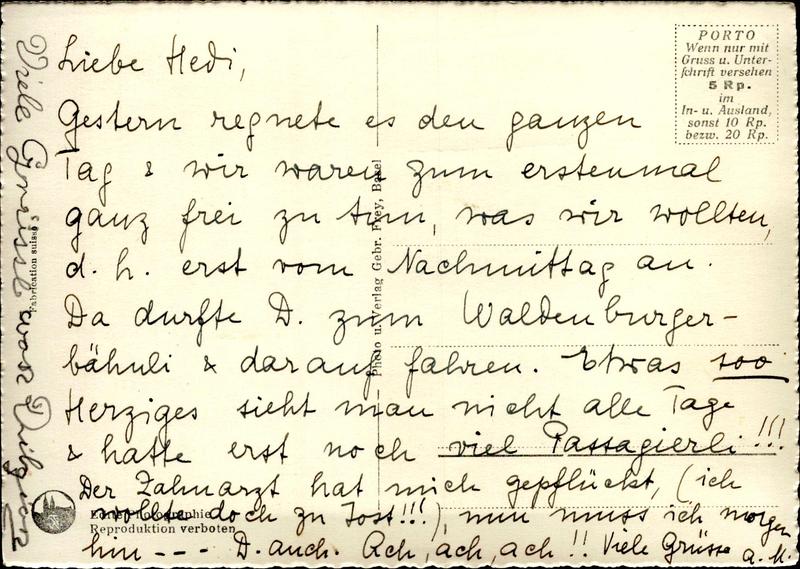 Liebe Hedi,
Gestern regnete es den ganzen
Tag & wir waren zum erstenmal
ganz frei zu tun, was wir wollten,
d. h. erst vom Nachmittag an.
Da durfte D. zum Waldenburger-
bähnli & darauf fahren. Etwas soo
Herziges sieht man nicht alle Tage
& hatte erst noch viel Passagierli!!!
Der Zahnarzt hat mich gepflückt, (ich
wollte doch zu Jost!!!), nun muss ich morgen
hin --- D. auch. Ach, ach, ach!! Viele Grüsse a. M.
Viele Grüsse
PORTO
Wenn nur mit
Gruss u. Unter-
schrift versehen
5 Rp.
im
In- u. Ausland,
sonst 10 Rp.
bezw. 20 Rp.
Photo u. Verlag Gebr. Frey, Basel
Fabrication suisse
Reproduktion verboten